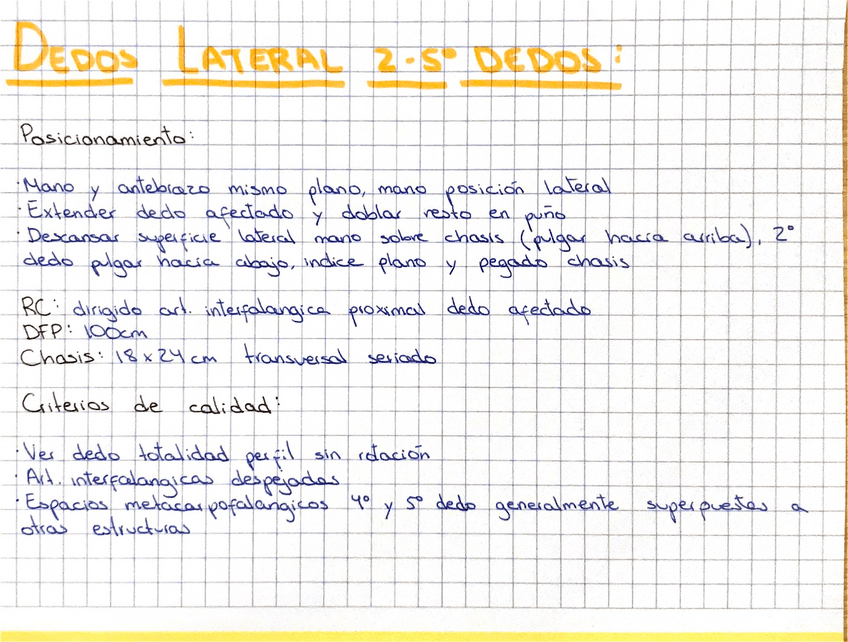 DEDOS LATERAL 2-5º DEDOS:
Posicionamiento:
·Mano y antebrazo mismo plano, mano posición lateral
·Extender dedo afectado y doblar resto en puño
·Descansar superficie lateral mano sobre chasis (pulgar hacia arriba), 2º
dedo pulgar hacia abajo, indice plano y pegado chasis
RC: dirigido art. interfalangica proximal dedo afectado
DFP: 100cm
Chasis: 18x24cm transversal seriado
Criterios de calidad:
·Ver dedo totalidad perfil sin rotación
·Art. interfalangicas despejadas
·Espacios metacarpofalangicos 4º y 5º dedo generalmente superpuestos a
otras estructuras